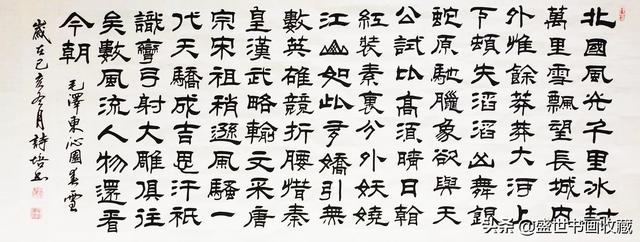 北國風光千里冰封
萬里雪飄望長城内
外惟餘莽莽大河上
下頓失滔滔山舞銀
蛇原馳臘象欲與天
公試比高須晴日看
紅裝素裹分外妖嬈
江山如此多嬌引無
數英雄競折腰惜秦
皇漢武略輸文采唐
宗宋祖稍遜風騷一
代天驕成吉思汗祇
識彎弓射大雕俱往
矣數風流人物還看
今朝
毛澤東沁園春雪
歲在己亥冬月詩培書
头条 @盛世书画收藏